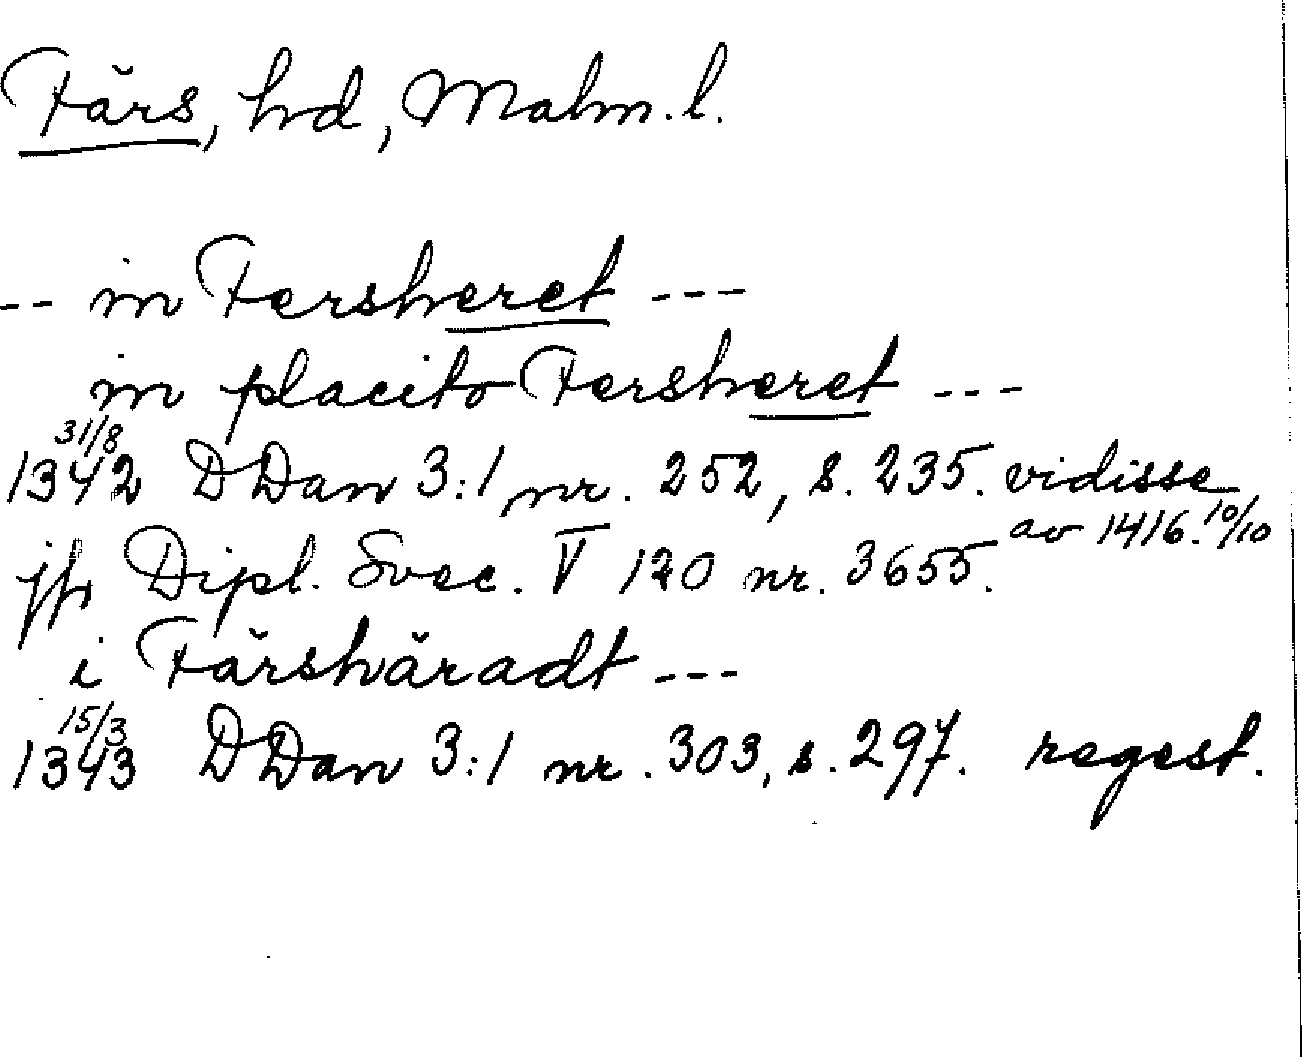 Färs, hd, Malm. l.
-- in Fersheret ---
in placito Fersheret ---
31/8
1342 DDan 3:1 nr. 252, s. 235. vidisse
av 1416. 10/10
jfr Dipl. Svec. V 120 nr. 3655.
i Färshäradt ---
15/3
1343 DDan 3:1 nr. 303, s. 297. regest.